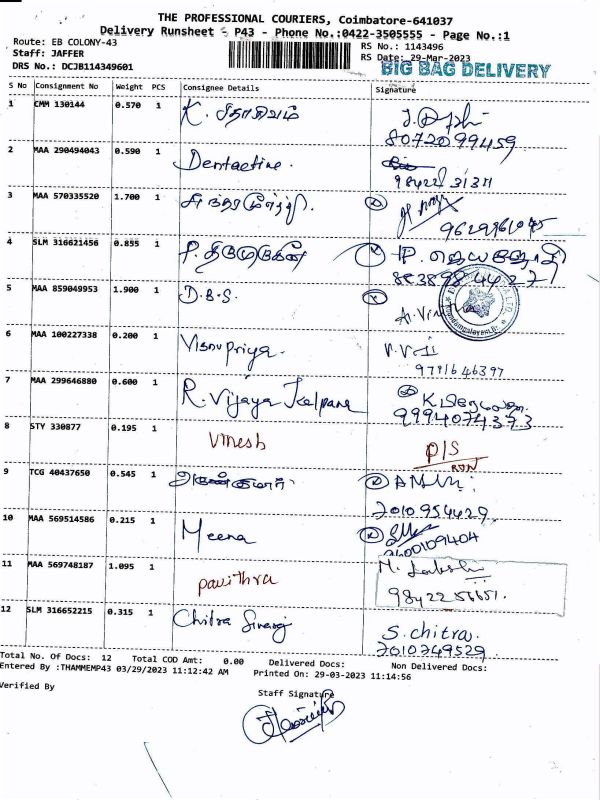 THE PROFESSIONAL COURIERS, Coimbatore-641037
Delivery Runsheet - P43 - Phone No.:0422-3505555 - Page No.:1
Route: EB COLONY-43 RS No.: 1143496
Staff: JAFFER RS Date: 29-Mar-2023
DRS No.: DCJB114349601 BIG BAG DELIVERY
S No Consignment No Weight PCS Consignee Details Signature
1 CMM 130144 0.570 1 K. சதாசிவம்
8072099459
2 MAA 290494043 0.590 1 Dentactive.
3 MAA 570335520 1.700 1
4 SLM 316621456 0.855 1
5 MAA 859049953 1.900 1 D.B.S.
6 MAA 100227338 0.200 1 Visnupriya.
9791646397
7 MAA 299646880 0.600 1 R. Vijaya Kalpana
9994074373
8 STY 330877 0.195 1 Umesh D/S
9 TCG 40437650 0.545 1
7010954429
10 MAA 569514586 0.215 1 Meena
11 MAA 569748187 1.095 1 pavithra
12 SLM 316652215 0.315 1 Chitra S.chitra.
7010749529
Total No. Of Docs: 12 Total COD Amt: 0.00 Delivered Docs: Non Delivered Docs:
Entered By :THAMMEMP43 03/29/2023 11:12:42 AM Printed On: 29-03-2023 11:14:56
Verified By
Staff Signature